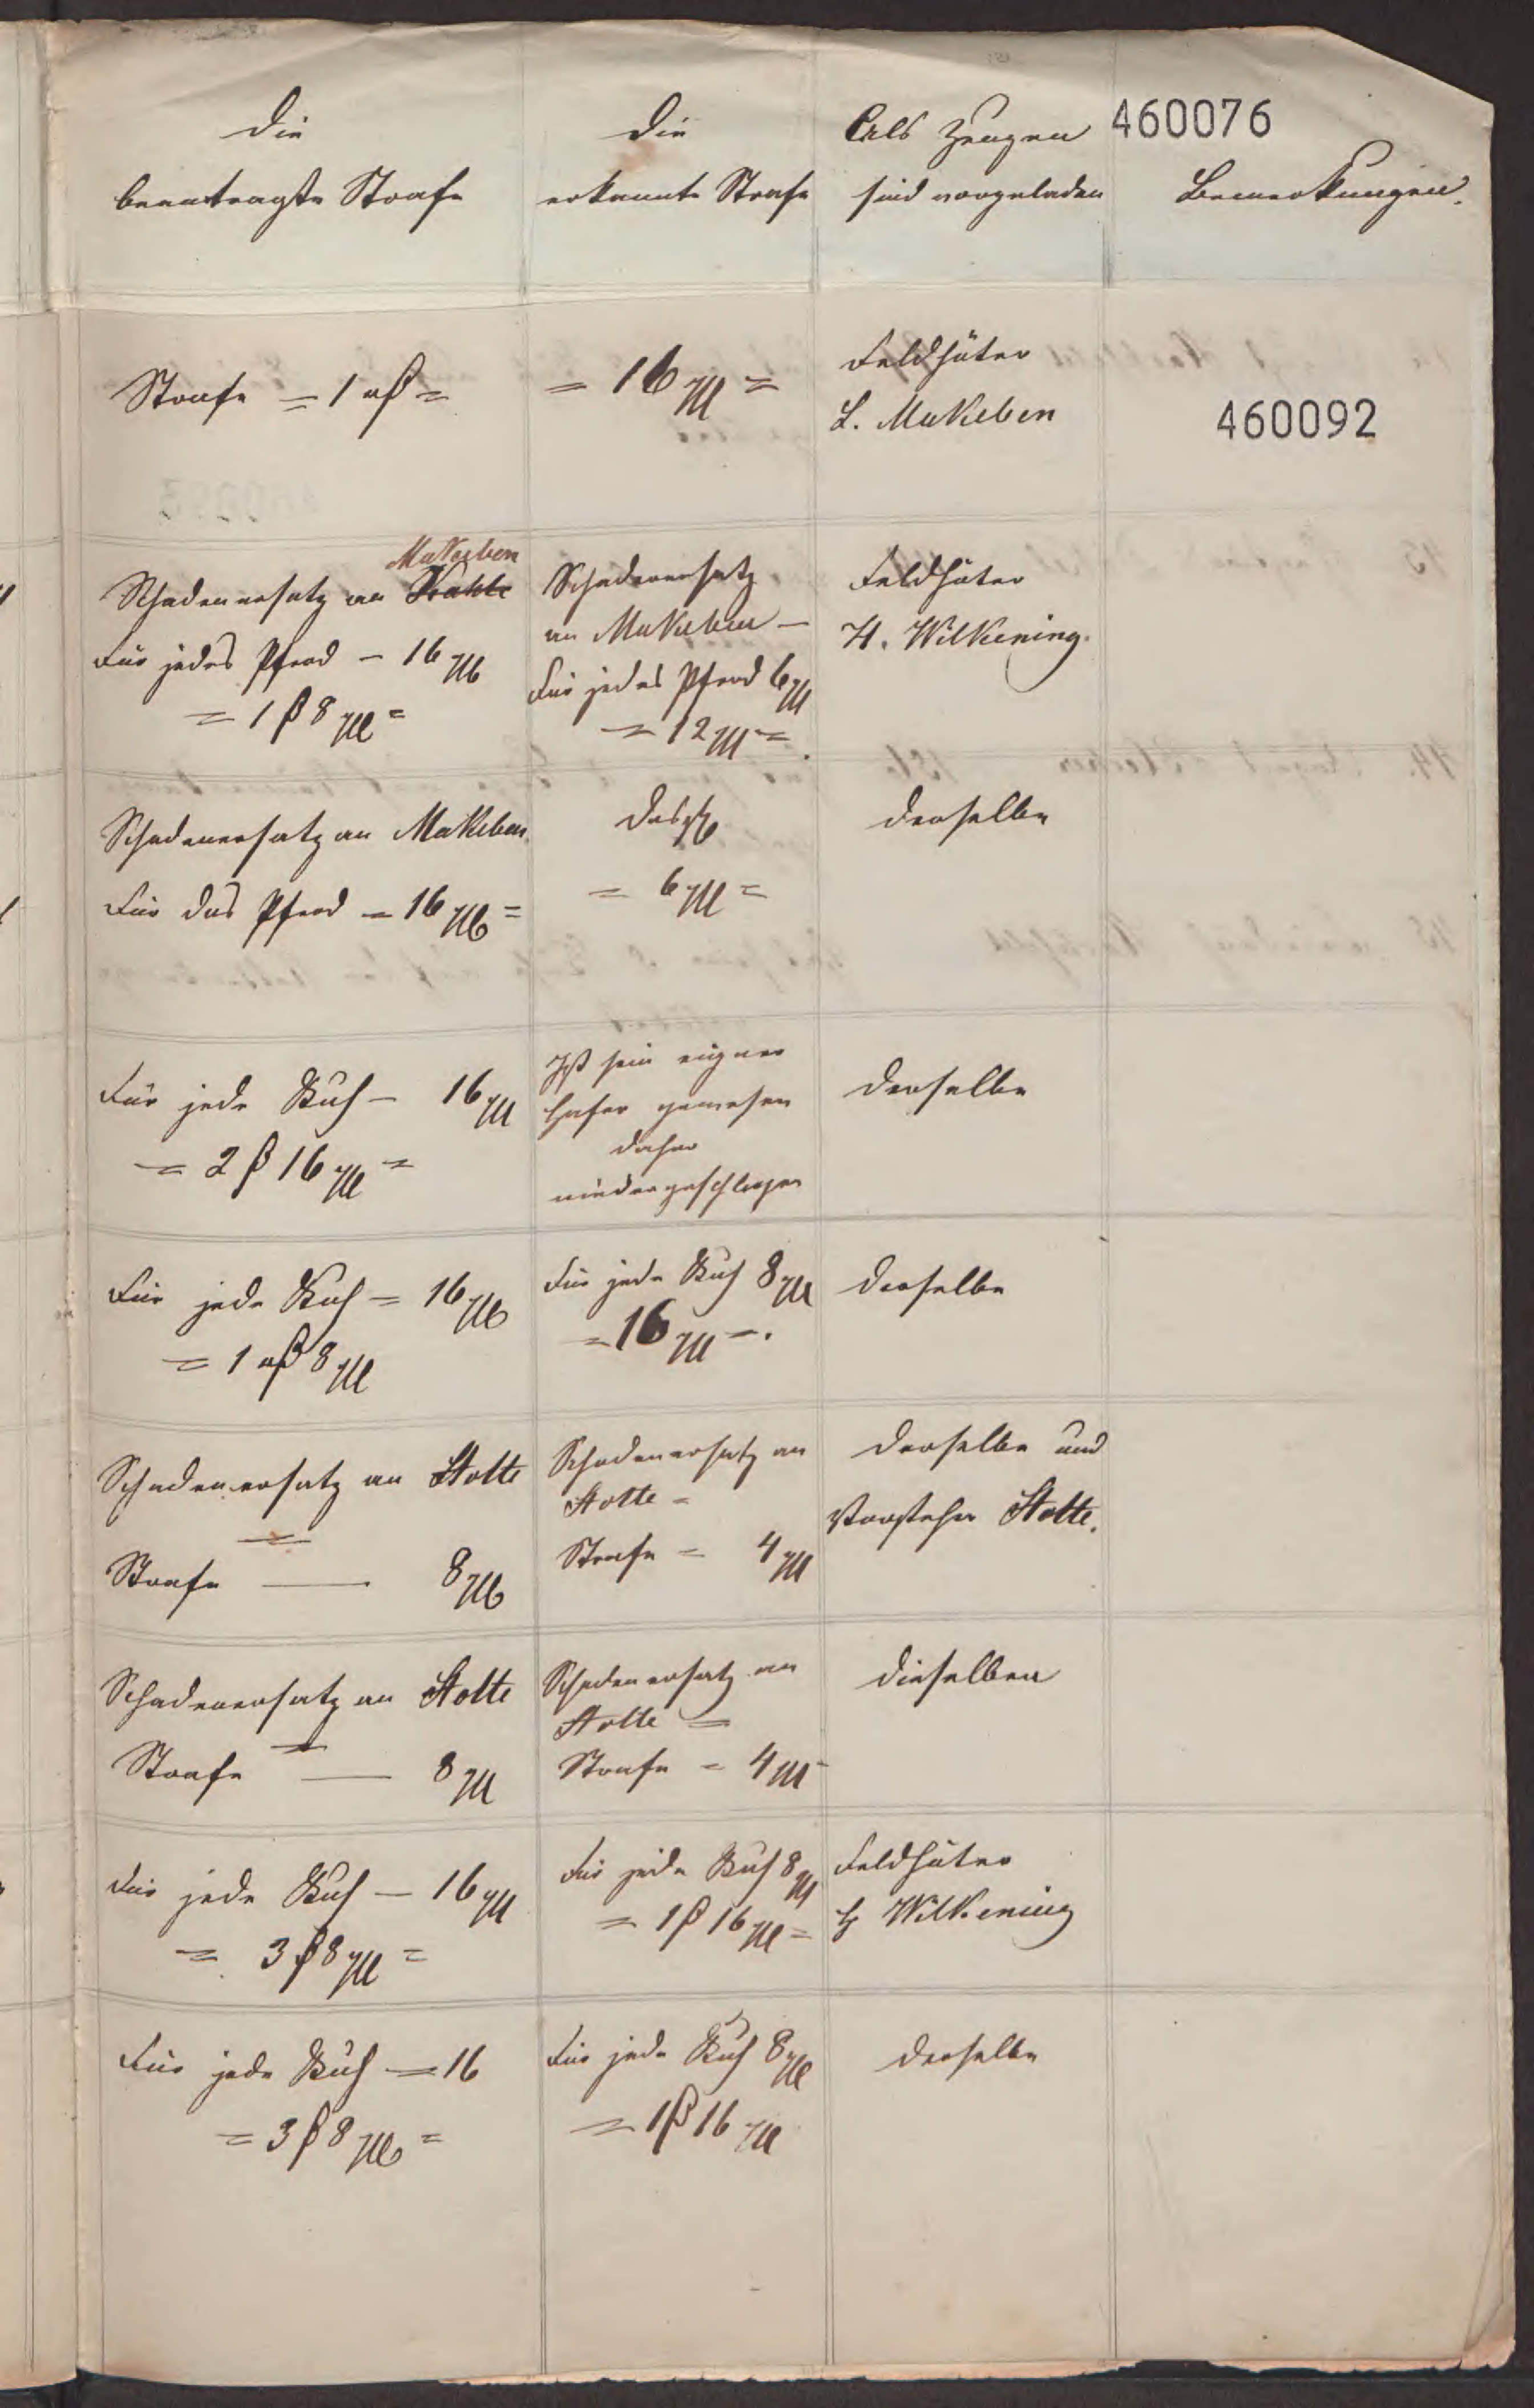 460076
Die
beantragte Strafe
Die
erkannte Strafe
Als Zeugen
sind vorgeladen
Bemerkungen.
Strafe = 1 ₰ =
= 16 M =
Feldhüter
L. Makeben
460092
Makeben
Schadenersatz an Krahle
Für jedes Pferd – 16 M
= 1 ₰ 8 M =
Schadenersatz
an Makeben –
Für jedes Pferd 6 M
= 12 M =.
Feldhüter
H. Wilkening.
Schadenersatz an Makeben.
Für das Pferd – 16 M =
Dasselbe
= 6 M =
Derselbe
Für jede Kuh – 16 M
= 2 ₰ 16 M =
Ist sein eigner
Hafer gewesen
daher
niedergeschlagen
Derselbe
Für jede Kuh = 16 M
= 1 ₰ 8 M
Für jede Kuh 8 M
= 16 M –.
Derselbe
Schadenersatz an Stolte
=
Strafe — 8 M
Schadenersatz an
Stolte =
Strafe = 4 M
Derselbe und
Vorsteher Stolte.
Schadenersatz an Stolte
=
Strafe — 8 M
Schadenersatz an
Stolte =
Strafe = 4 M
Dieselben
Für jede Kuh — 16 M
= 3 ₰ 8 M =
Für jede Kuh 8 M
= 1 ₰ 16 M =
Feldhüter
H Wilkening
Für jede Kuh — 16
= 3 ₰ 8 M =
Für jede Kuh 8 M
= 1 ₰ 16 M
Derselbe